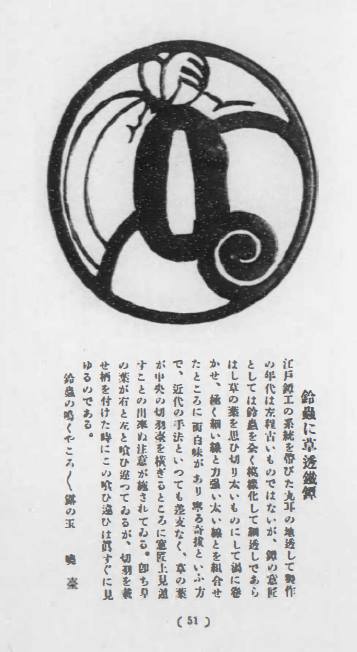 鈴蟲に草透鐵鐔
江戸鐔工の系統を帶びた丸耳の地透して製作
の年代は左程古いものではないが、鐔の意匠
としては鈴蟲を全く模樣化して鋼透しであら
はし草の葉を思ひ切り太いものにして渦に卷
かせ、極く細い線と力强い太い線とを組合せ
たところに面白味があり寧ろ奇拔といふ方
で、近代の手法といつても差支なく、草の葉
が中央の切羽臺を橫ぎるところに意匠上見逃
すことの出來ぬ注意が施されてゐる。卽ち草
の葉が右と左と喰ひ違つてゐるが、切羽を裁
せ柄を付けた時にこの喰ひ違ひは眞すぐに見
ゆるのである。
鈴蟲の鳴くやころ〱露の玉 曉臺
( 51 )